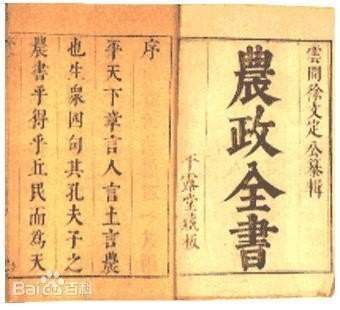 雲間徐文定公纂輯
農政全書
平露堂藏板
序
平天下章言人言土言農
也生衆四句其孔夫子之
農書乎得乎丘民而為天
Bai百科